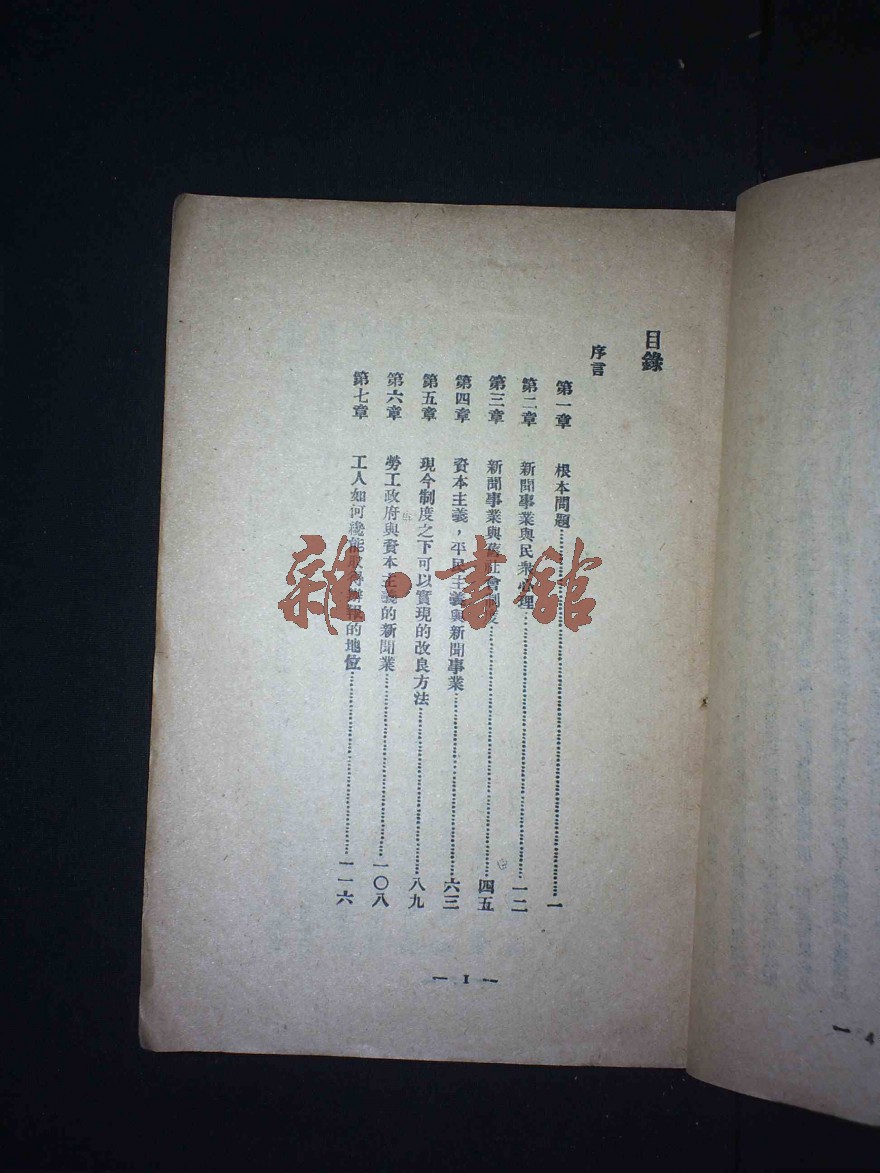 目錄
序言
第一章 根本問題…………一
第二章 新聞事業與民衆心理…………一二
第三章 新聞事業與舊社會制度…………四五
第四章 資本主義，平民主義與新聞事業…………六三
第五章 現今制度之下可以實現的改良方法…………八九
第六章 勞工政府與資本主義的新聞業…………一〇八
第七章 工人如何纔能取得辦報的地位…………一一六
— I —
雜·書館